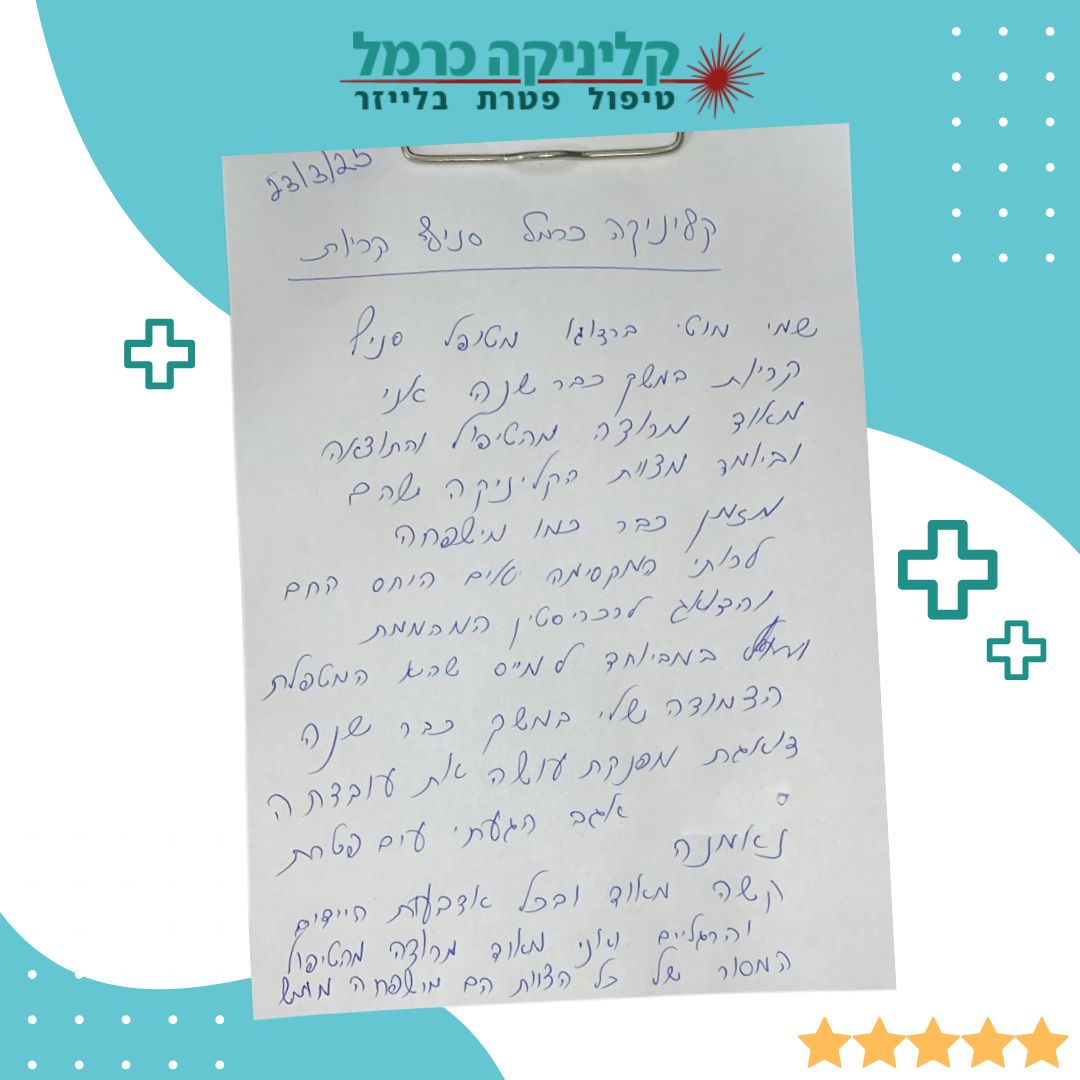 קליניקה כרמל
טיפול פטרת בלייזר
23/3/25
קליניקה כרמל סניף קריות
שמי מוטי מטופל סניף
קריות במשק כבר שנה אני
מאוד מרוצה מהטיפול והתוצאה
וביומד מצוות הקליניקה שהם
מזמן כבר כמו מישפחה
לרותי המקסימה עים היחס החם
והדואג לרכריסטין המהממת
במביוחד למייס שהיא המטפלת
הצמודה שלי במשק כבר שנה
דואגת מפנקת עושה את עובדתה
נאמנה
אגב הגעתי עים פטרת
קשה מאוד ובכל אצבעות היידים
והרגליים ואני מאוד מרוצה מהטיפול
המסור של כל הצוות הם מישפחה ממש